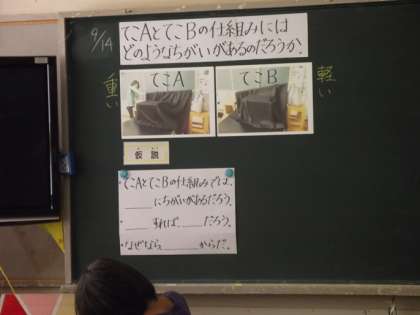 9/14
てこAとてこBの仕組みには
どのようなちがいがあるのだろうか。
重い
てこA
てこB
軽い
仮説
・てこAとてこBの仕組みでは、
____にちがいがあるだろう。
・____すれば、____だろう。
・なぜなら、____からだ。